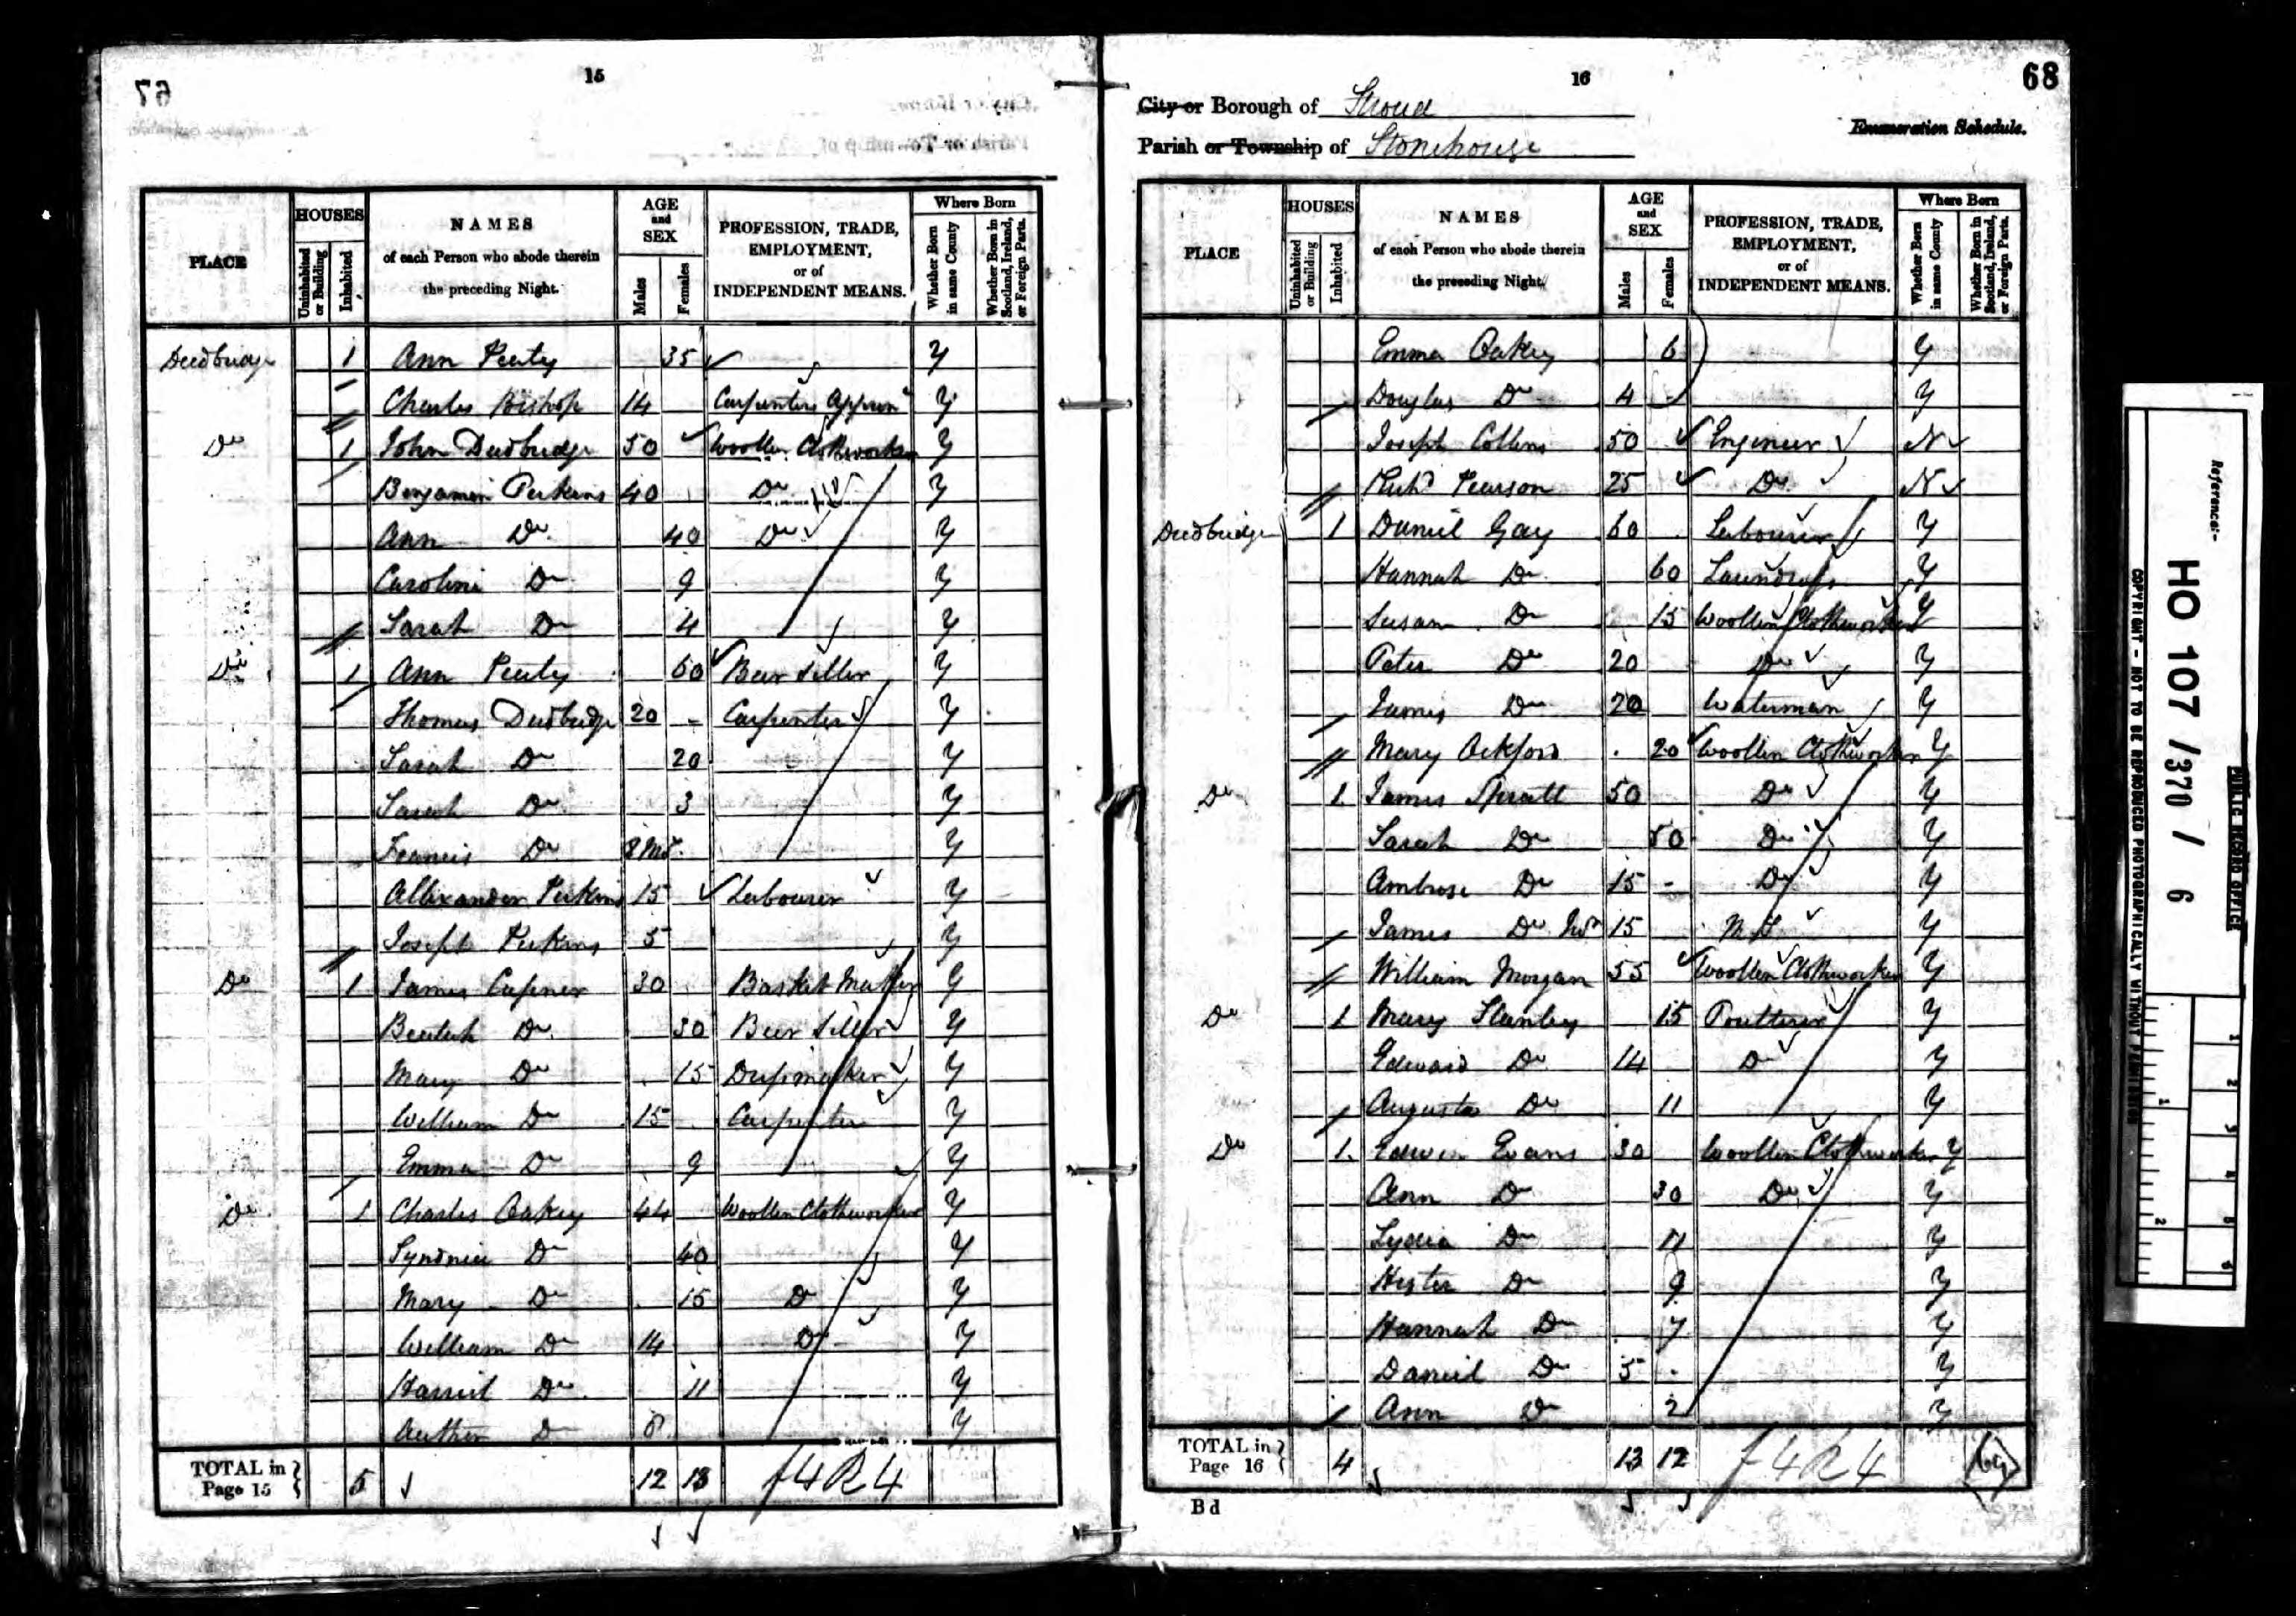 67
15
PLACE HOUSES Uninhabited or Building Inhabited NAMES of each Person who abode therein the preceding Night. AGE and SEX Males Females PROFESSION, TRADE, EMPLOYMENT, or of INDEPENDENT MEANS. Where Born Whether Born in same County Whether Born in Scotland, Ireland, or Foreign Parts.
Dudbridge 1 Ann 35 Y
Charles Bishop 14 Carpenters Y
Do 1 John Dudbridge 50 Woollen Clothworker Y
Benjamin Perkins 40 Do Y
Ann Do 40 Do Y
Caroline Do 9 Y
Sarah Do 4 Y
Do 1 Ann 60 Beer Seller Y
Thomas Dudbridge 20 Carpenter Y
Sarah Do 20 Y
Sarah Do 3 Y
Francis Do 8 Ms. Y
Allixander Perkins 15 Labourer Y
Joseph Perkins 5 Y
Do 1 James Capner 30 Basket Maker Y
Beulah Do 30 Beer Seller Y
Mary Do 15 Dressmaker Y
William Do 15 Carpenter Y
Emma Do 9 Y
Do 1 Charles Oakey 44 Woollen Clothworker Y
Do 40 Y
Mary Do 15 Do Y
William Do 14 Do Y
Harriet Do 11 Y
Do 8 Y
TOTAL in Page 15 5 12 13
16
68
City or Borough of Stroud
Enumeration Schedule.
Parish or Township of Stonehouse
PLACE HOUSES Uninhabited or Building Inhabited NAMES of each Person who abode therein the preceding Night. AGE and SEX Males Females PROFESSION, TRADE, EMPLOYMENT, or of INDEPENDENT MEANS. Where Born Whether Born in same County Whether Born in Scotland, Ireland, or Foreign Parts.
Emma Oakey 6 Y
Douglas Do 4 Y
Joseph Collins 50 Engineer N
Richd Pearson 25 Do N
Dudbridge 1 Daniel Gay 60 Labourer Y
Hannah Do 60 Laundress Y
Susan Do 15 Woollen Clothworker Y
Peter Do 20 Do Y
James Do 20 Waterman Y
Mary Ockford 20 Woollen Clothworker Y
Do 1 James Spratt 50 Do Y
Sarah Do 50 Do Y
Ambrose Do 15 Do Y
James Do 15 M.S. Y
William Morgan 55 Woollen Clothworker Y
Do 1 Mary Stanley 15 Poulterer Y
Edward Do 14 Do Y
Augusta Do 11 Y
Do 1 Edwin Evans 30 Woollen Clothworker Y
Ann Do 30 Do Y
Lydia Do 11 Y
Hester Do 9 Y
Hannah Do 7 Y
Daniel Do 5 Y
Ann Do 2 Y
TOTAL in Page 16 4 13 12
Bd
Reference:-
HO 107 / 370 / 6
PUBLIC RECORD OFFICE
COPYRIGHT - NOT TO BE REPRODUCED PHOTOGRAPHICALLY WITHOUT PERMISSION
1 2
1 2 3 4 5 6